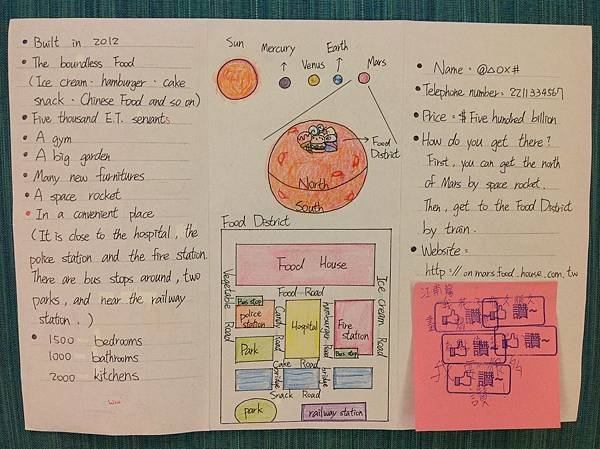 Built in 2012
The boundless Food
(Ice cream · hamburger · cake
snack · Chinese Food and so on)
Five thousand E.T. servants
A gym
A big garden
Many new furnitures
A space rocket
In a convenient place
(It is close to the hospital, the
police station and the fire station.
There are bus stops around, two
parks, and near the railway
station.)
1500 bedrooms
1000 bathrooms
2000 kitchens
Sun
Mercury
Venus
Earth
Mars
Food
District
North
South
Food District
Food House
Food Road
Vegetable Road
Ice Cream Road
Bus stop
police
station
Candy Road
Hospital
hamburger Road
Fire
station
Park
Bus stop
Cake Road
bridge
bridge
Snack Road
park
railway station
Name : @△O×#
Telephone number : 2211334567
Price : $ Five hundred billion
How do you get there?
First, you can get the north
of Mars by space rocket.
Then, get to the Food District
by train.
Website :
http://onmars.food.house.com.tw
讚~
讚~
讚~
讚~
讚~
讚